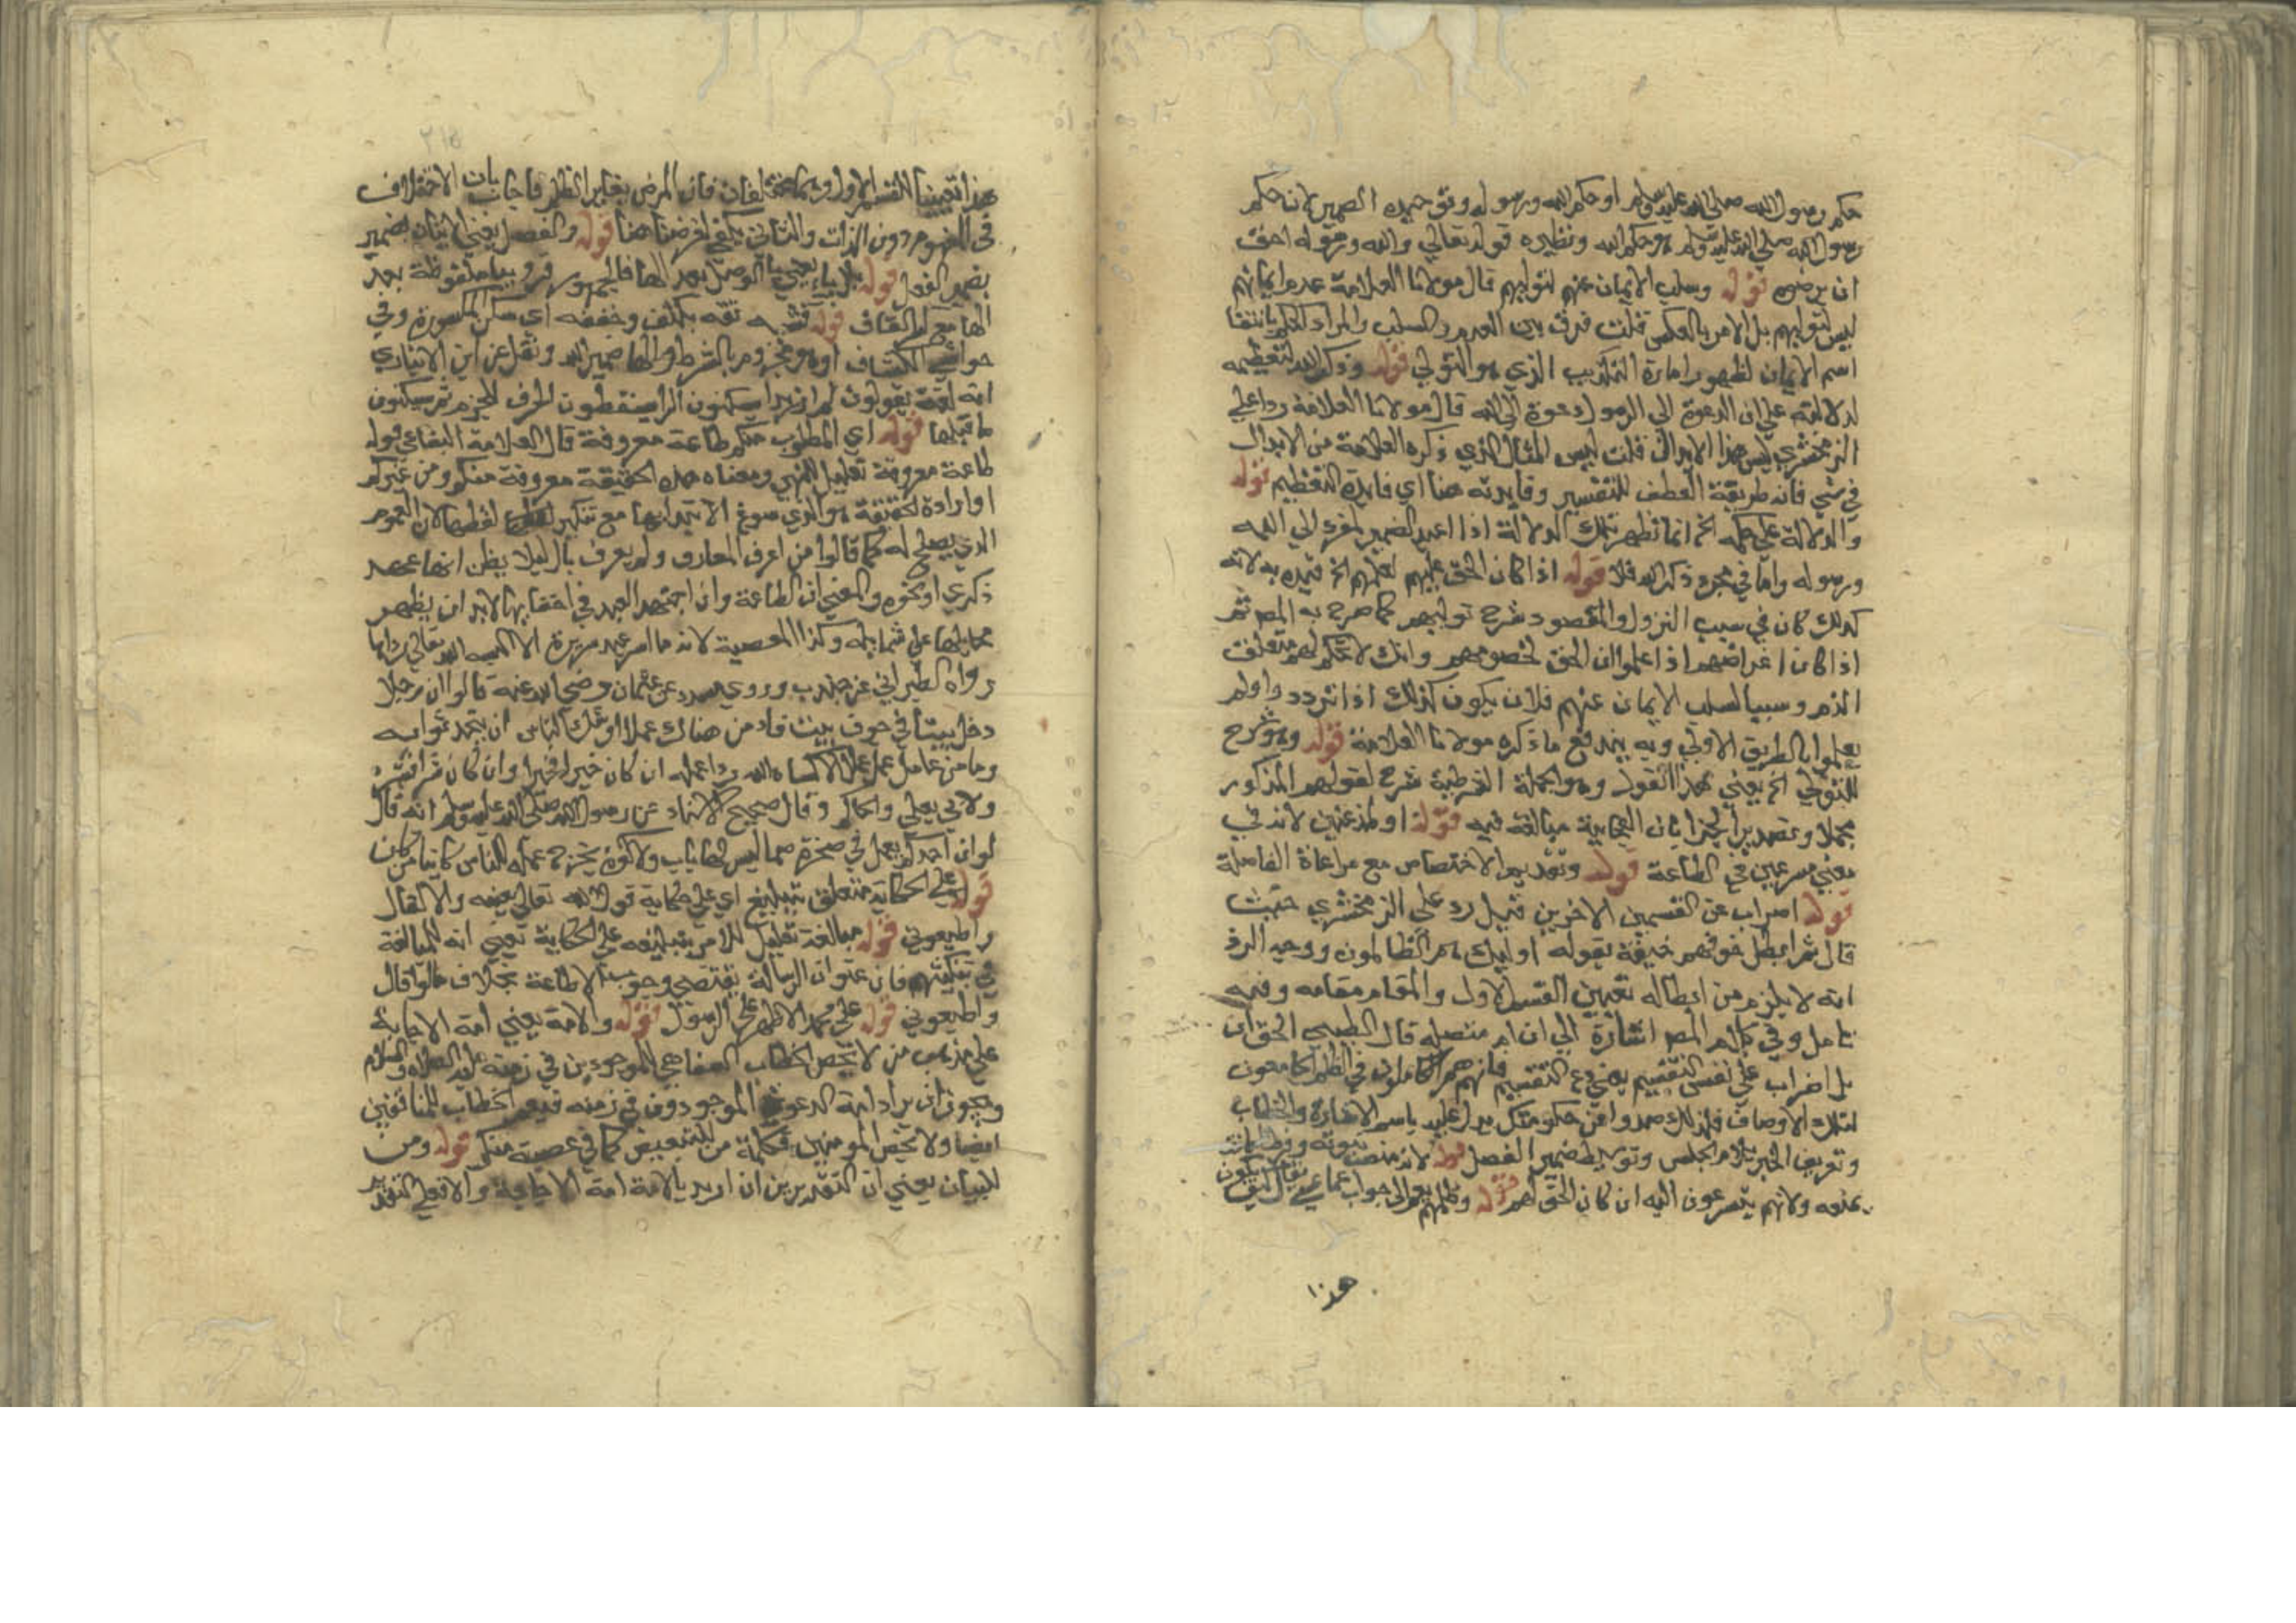 حكم رسول الله صلى الله عليه وسلم او حكم الله ورسوله وتوحيد الضمير لان حكم
رسول الله صلى الله عليه وسلم هو حكم الله ونظيره قوله تعالي والله ورسوله احق
ان يرضوه قوله وسلب الايمان عنهم لتوليهم قال مولانا العلامة عدم ايمانهم
ليس لتوليهم بل الامر بالعكس قلت فرق بين العدم والسلب والمراد الحكم بانتفا
اسم الايمان لظهور امارة التكذيب الذي هو التولي قوله وذكر الله لتعظيمه
لدلالته على ان الدعوة الي الرسول دعوة الى الله قال مولانا العلامة ردا علي
الزمخشري ليس هذا الابدال قلت ليس المثال الذي ذكره العلامة من الابدال
في شي فانه طريقة العطف للتفسير وفايدته هنا اي فايدة التعظيم قوله
والدلالة على حكمه الخ انما تظهر تلك الدلالة اذا اعيد الضمير المفرد الي الله
ورسوله واما في مجرد ذكر الله فلا قوله اذا كان الحق عليهم لعلمهم الخ قيده به لانه
كذلك كان في سبب النزول والمقصود شرح توليهم كما صرح به المص ثم
اذا كان اغراضهم اذا علموا ان الحق لخصومهم وانك لا تحكم لهم متعلق
الذم وسببا لسلب الايمان عنهم فلان يكون كذلك اذا تردد واولم
يعلموا بالطريق الاولي وبه يندفع ما ذكره مولانا العلامة قوله وهو شرح
للتولي الخ يعني هذا القول وهو الجملة الشرطية شرح لقولهم المذكور
مجملا وتصدير الجزا بان الفجايية مبالغة فيه قوله او لمذعنين لانه في
معني مسرعين في الطاعة قوله وتقديم الاختصاص مع مراعاة الفاصلة
قوله اضراب عن القسمين الاخرين قيل رد على الزمخشري حيث
قال ثم ابطل خوفهم حيفه بقوله اوليك هم الظالمون ووجه الرد
انه لا يلزم من ابطاله تعيين القسم الاول والمقام مقامه وفيه
تامل وفي كلام المص اشارة الي ان ام متصلة قال الطيبي الحق ان
بل اضراب على نفس التقسيم يعني دع التقسيم فانهم هم الكاملون في الظلم الجامعون
لتلك الاوصاف فلذلك صدوا عن حكومتك يدل عليه باسم الاشارة والخطاب
وتعريف الخبر بلام الجنس وتوسيط ضمير الفصل قوله لان منصب نبوته وفرط امانته
يمنعه ولانهم يسرعون اليه ان كان الحق لهم قوله وظلمهم يعم الي جواب عما عسي يقال كيف يكون
هذا
هذا تعيينا للقسم الاول وهما مختلفان فان المرض يغاير الظلم فاجاب بان الاختلاف
في المفهوم دون الذات والثاني يكفي لغرضنا هنا قوله والفصل يعني الاتيان بضمير
بضمير الفصل قوله بلا ياء يعني يا الوصل بعد الها فالجمهور قروا بيا ملفوظة بعد
الها مع كسر القاف قوله فشبه تقه بكتف وخففه اي سكن المكسورة وفي
حواشي الكشاف او هو مجزوم بالشرط والها ضمير الله ونقل عن ابن الانباري
انه لغة يقولون لم ار زيدا بسكون الرا يسقطون الحرف للجزم ثم يسكنون
ما قبلها قوله اي المطلوب منكم طاعة معروفة قال العلامة البقاعي قوله
طاعة معروفة تعليل للنهي ومعناه هذه الحقيقة معروفة منكم ومن غيركم
اوارادة الحقيقة هو الذي سوغ الابتدا بها مع تنكير لفظها لان العموم
الذي يصلح له كما قالوا من اعرف المعارف ولم يعرف بال ليلا يظن انها عهد
ذكري او نحوه والمعني ان الطاعة وان اجتهد العبد في اخفايها لابد ان يظهر
مخايلها على شمايله وكذا المعصية لانه ما اسر عبد سريرة الا البسه الله تعالي رداها
رواه الطبراني عن جندب وروي مسدد عن عثمان رضي الله عنه قال لو ان رجلا
دخل بيتا في جوف بيت فاد من هناك عملا اوشك الناس ان يتحدثوا به
وما من عامل عمل عملا الا كساه الله ردا عمله ان كان خيرا فخيرا وان كان شرا فشره
ولابي يعلي والحاكم وقال صحيح الاسناد عن رسول الله صلى الله عليه وسلم انه قال
لو ان احدكم يعمل في صخرة صما ليس لها باب ولا كوة يخرج عمله للناس كاينا من كان
قوله على الحكاية متعلق بتبليغ اي على حكاية قول الله تعالي بعينه والا لقال
واطيعوني قوله مبالغة تعليل للامر بتبليغه على الحكاية يعني انه للمبالغة
في تبكيتهم فان عنوان الرسالة يقتضي وجوب الاطاعة بخلاف ما لو قال
واطيعوني قوله علي محمد الاظهر على الرسول قوله والامة يعني امة الاجابة
على مذهب من لا يخص الخطاب الشفاهي للموجودين في زمنه عليه الصلاة والسلام
ويجوز ان يراد امة الدعوة الموجودون في زمنه فيعم الخطاب للمنافقين
ايضا ولا يخص المومنين فكلمة من للتبعيض كما في عصبة منكم قوله ومن
للبيان يعني ان التقديرين ان اريد بالامة امة الاجابة والا فعلي التقدير